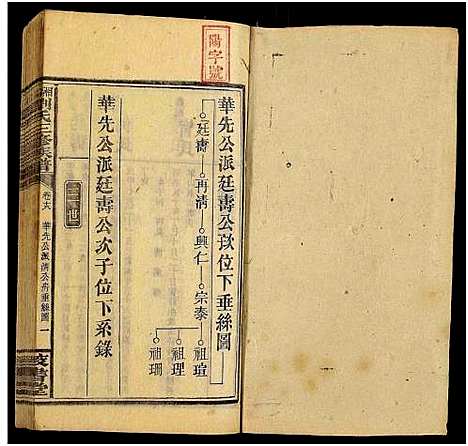 陽字號
華先公派廷壽公玖位下垂絲圖
廷壽 再清 興仁 宗泰 祖瑄
祖理
祖珊
華先公派廷壽公次子位下系錄
三世
湘 劉氏三修族譜
卷六 華先公派清公房垂絲圖 一
書堂